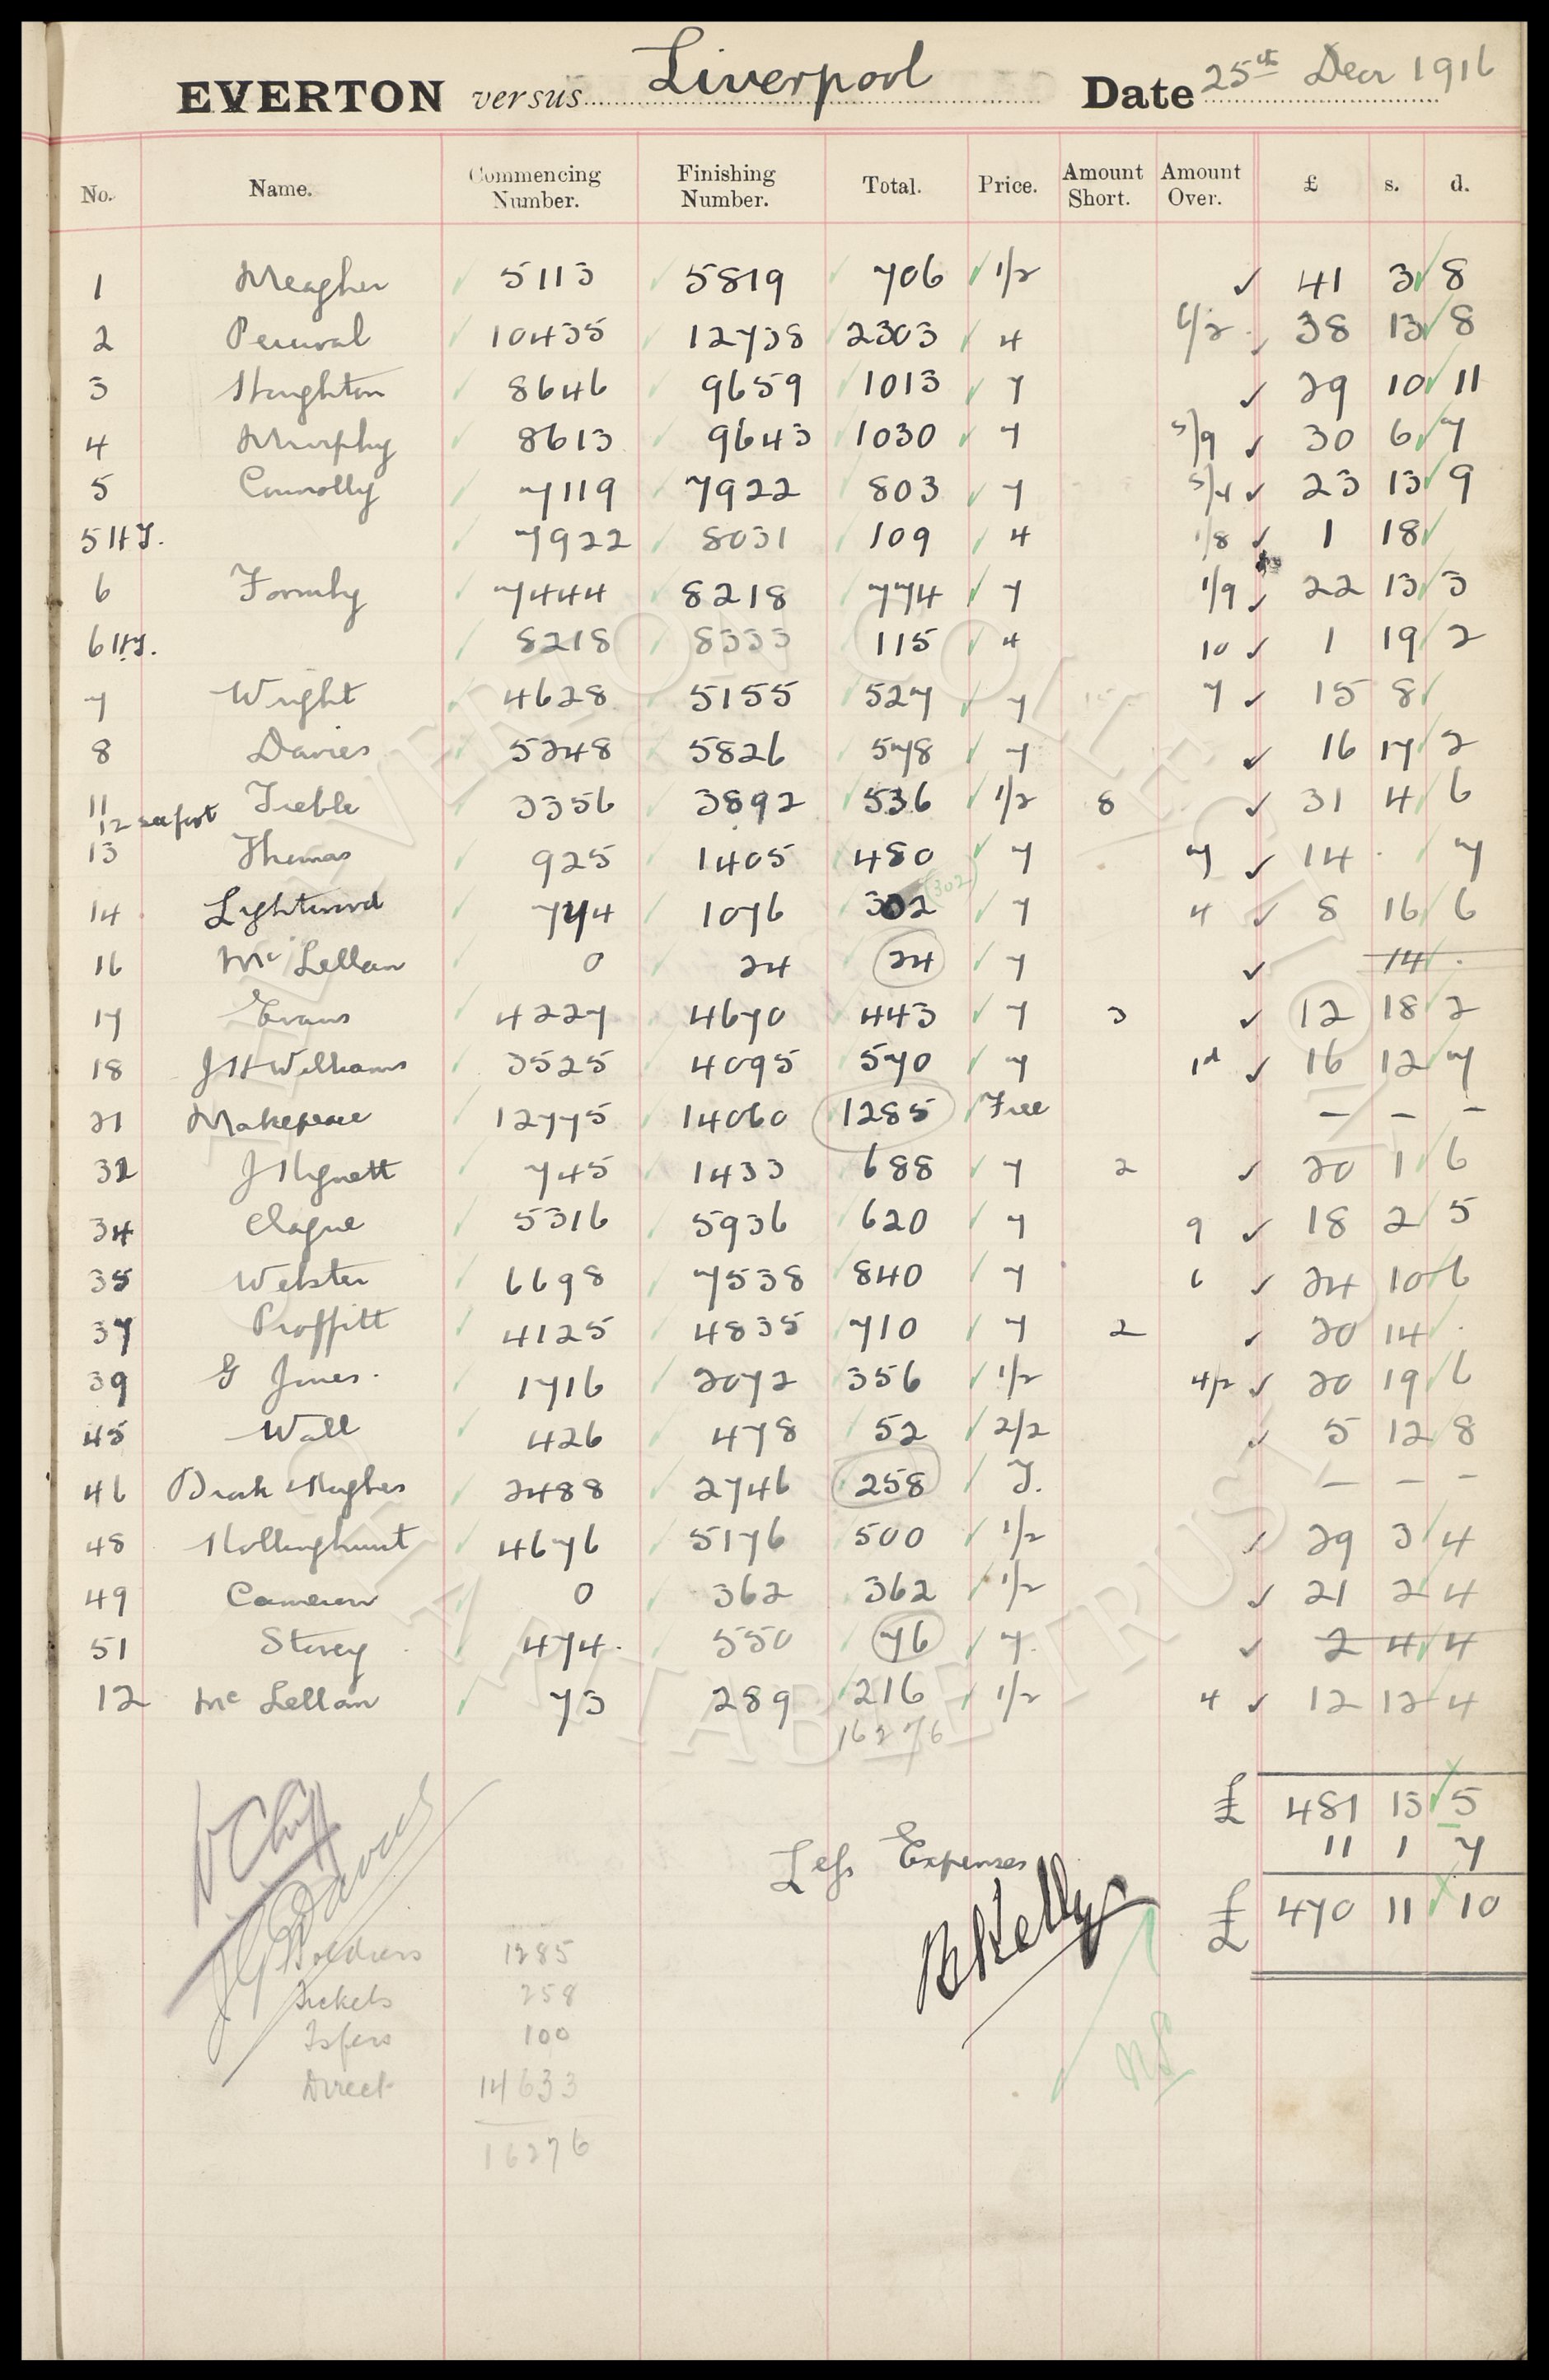 EVERTON versus Liverpool Date 25th Decr 1916
No. Name. Commencing Number. Finishing Number. Total. Price. Amount Short. Amount Over. £ s. d.
1 Meagher 5113 5819 706 1/2 41 3 8
2 Percival 10435 12738 2303 4 6/2 38 13 8
3 Houghton 8646 9659 1013 7 29 10 11
4 Murphy 8613 9643 1030 7 5/9 30 6 7
5 Connolly 7119 7922 803 7 5/4 23 13 9
5 H.T. 7922 8031 109 4 1/8 1 18
6 Formby 7444 8218 774 7 1/9 22 13 3
6 H.T. 8218 8333 115 4 10 1 19 2
7 Wright 4628 5155 527 7 7 15 8
8 Davies 5248 5826 578 7 16 17 2
11 Treble 3356 3892 536 1/2 8 31 4 6
12 see foot
13 Thomas 925 1405 480 7 7 14 . 7
14 Lightwood 774 1076 302 (302) 7 4 8 16 6
16 Mc Lellan 0 24 24 7 14 .
17 Evans 4227 4670 443 7 3 12 18 2
18 J H Williams 3525 4095 570 7 1d 16 12 7
21 Makepeace 12775 14060 1285 Free — — —
32 J Hignett 745 1433 688 7 2 20 1 6
34 Clague 5316 5936 620 7 9 18 2 5
35 Webster 6698 7538 840 7 6 24 10 6
37 Proffitt 4125 4835 710 7 2 20 14 .
39 G Jones. 1716 2072 356 1/2 4/2 20 19 6
45 Wall 426 478 52 2/2 5 12 8
46 Hughes 2488 2746 258 T. — — —
48 Hollinghurst 4676 5176 500 1/2 29 3 4
49 Cameron 0 362 362 1/2 21 2 4
51 Storey 474. 550 76 7. 2 4 4
12 Mc Lellan 73 289 216 1/2 4 12 12 4
16276
£ 481 13 5
Less Expenses 11 1 7
£ 470 11 10
B Kelly
Soldiers 1285
Tickets 258
Tsfers 100
Direct 14633
16276